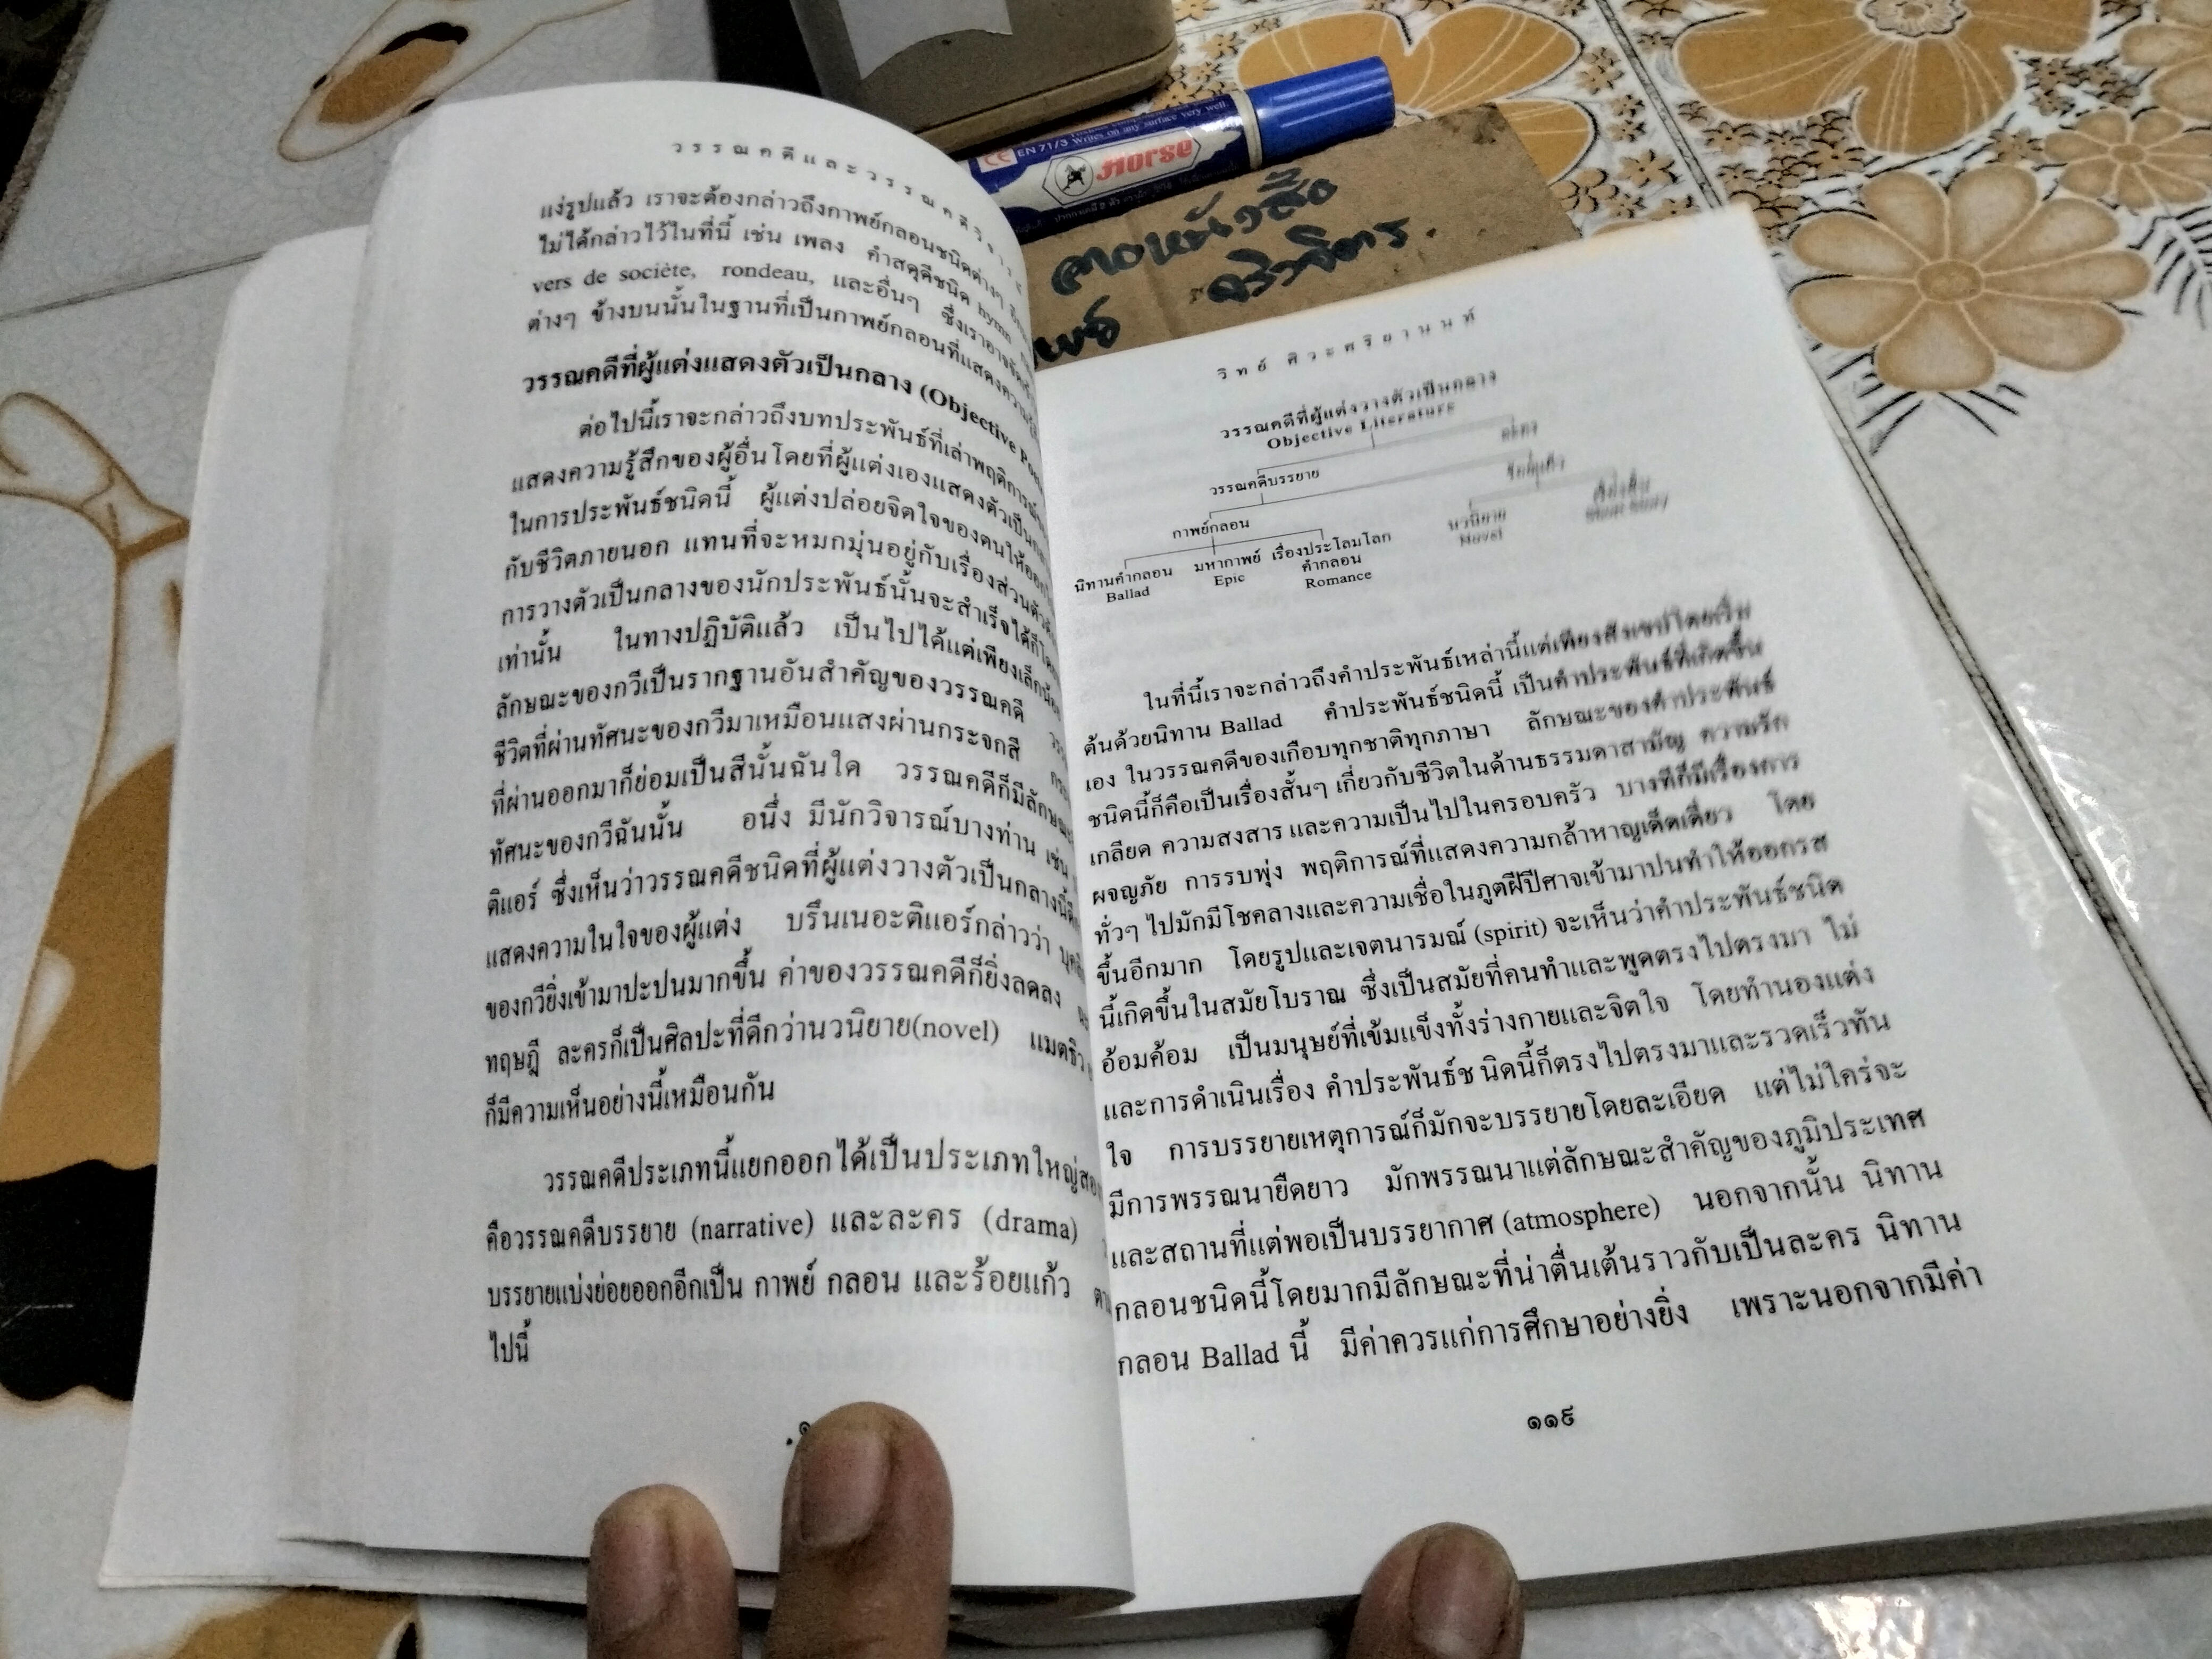 วรรณคดีและวรรณคดีวิจารณ์
แง่รูปแล้ว เราจะต้องกล่าวถึงกาพย์กลอนชนิดต่างๆ
ไม่ได้กล่าวไว้ในที่นี้ เช่น เพลง คำสดุดีชนิด hymn
vers de sociète, rondeau, และอื่นๆ ซึ่งเราอาจจัด
ต่างๆ ข้างบนนั้นในฐานที่เป็นกาพย์กลอนที่แสดงความ
วรรณคดีที่ผู้แต่งแสดงตัวเป็นกลาง (Objective
ต่อไปนี้เราจะกล่าวถึงบทประพันธ์ที่เล่าพฤติการณ์
แสดงความรู้สึกของผู้อื่น โดยที่ผู้แต่งเองแสดงตัวเป็น
ในการประพันธ์ชนิดนี้ ผู้แต่งปล่อยจิตใจของตนให้ออก
กับชีวิตภายนอก แทนที่จะหมกมุ่นอยู่กับเรื่องส่วนตัว
การวางตัวเป็นกลางของนักประพันธ์นั้นจะสำเร็จได้ก็
เท่านั้น ในทางปฏิบัติแล้ว เป็นไปได้แต่เพียงเล็กน้อย
ลักษณะของกวีเป็นรากฐานอันสำคัญของวรรณคดี
ชีวิตที่ผ่านทัศนะของกวีมาเหมือนแสงผ่านกระจกสี
ที่ผ่านออกมาก็ย่อมเป็นสีนั้นฉันใด วรรณคดีก็มีลักษณะ
ทัศนะของกวีฉันนั้น อนึ่ง มีนักวิจารณ์บางท่าน เช่น
ติแอร์ ซึ่งเห็นว่าวรรณคดีชนิดที่ผู้แต่งวางตัวเป็นกลางนี้
แสดงความในใจของผู้แต่ง บรึนเนอะติแอร์กล่าวว่า
ของกวียิ่งเข้ามาปะปนมากขึ้น ค่าของวรรณคดีก็ยิ่งลดลง
ทฤษฎี ละครก็เป็นศิลปะที่ดีกว่านวนิยาย(novel) แมตธิว
ก็มีความเห็นอย่างนี้เหมือนกัน
วรรณคดีประเภทนี้แยกออกได้เป็นประเภทใหญ่
คือวรรณคดีบรรยาย (narrative) และละคร (drama)
บรรยายแบ่งย่อยออกอีกเป็น กาพย์ กลอน และร้อยแก้ว
ไปนี้
CE EN 71/3 Writes on any surface very well.
Horse
วิทย์ ศิวะศริยานนท์
วรรณคดีที่ผู้แต่งวางตัวเป็นกลาง
Objective Literature
วรรณคดีบรรยาย ละคร
กาพย์กลอน ร้อยแก้ว
นิทานคำกลอน มหากาพย์ เรื่องประโลมโลก นวนิยาย เรื่องสั้น
Ballad Epic คำกลอน Novel
Romance
ในที่นี้เราจะกล่าวถึงคำประพันธ์เหล่านี้แต่เพียงสังเขปโดยเริ่ม
ต้นด้วยนิทาน Ballad คำประพันธ์ชนิดนี้ เป็นคำประพันธ์ที่เกิดขึ้น
เอง ในวรรณคดีของเกือบทุกชาติทุกภาษา ลักษณะของคำประพันธ์
ชนิดนี้ก็คือเป็นเรื่องสั้นๆ เกี่ยวกับชีวิตในด้านธรรมดาสามัญ ความรัก
เกลียด ความสงสาร และความเป็นไปในครอบครัว บางทีก็มีเรื่องการ
ผจญภัย การรบพุ่ง พฤติการณ์ที่แสดงความกล้าหาญเด็ดเดี่ยว โดย
ทั่วๆ ไปมักมีโชคลางและความเชื่อในภูตผีปีศาจเข้ามาปนทำให้ออกรส
ขึ้นอีกมาก โดยรูปและเจตนารมณ์ (spirit) จะเห็นว่าคำประพันธ์ชนิด
นี้เกิดขึ้นในสมัยโบราณ ซึ่งเป็นสมัยที่คนทำและพูดตรงไปตรงมา ไม่
อ้อมค้อม เป็นมนุษย์ที่เข้มแข็งทั้งร่างกายและจิตใจ โดยทำนองแต่ง
และการดำเนินเรื่อง คำประพันธ์ชนิดนี้ก็ตรงไปตรงมาและรวดเร็วทัน
ใจ การบรรยายเหตุการณ์ก็มักจะบรรยายโดยละเอียด แต่ไม่ใคร่จะ
มีการพรรณนายืดยาว มักพรรณนาแต่ลักษณะสำคัญของภูมิประเทศ
และสถานที่แต่พอเป็นบรรยากาศ (atmosphere) นอกจากนั้น นิทาน
กลอนชนิดนี้โดยมากมีลักษณะที่น่าตื่นเต้นราวกับเป็นละคร นิทาน
กลอน Ballad นี้ มีค่าควรแก่การศึกษาอย่างยิ่ง เพราะนอกจากมีค่า
๑๑๙